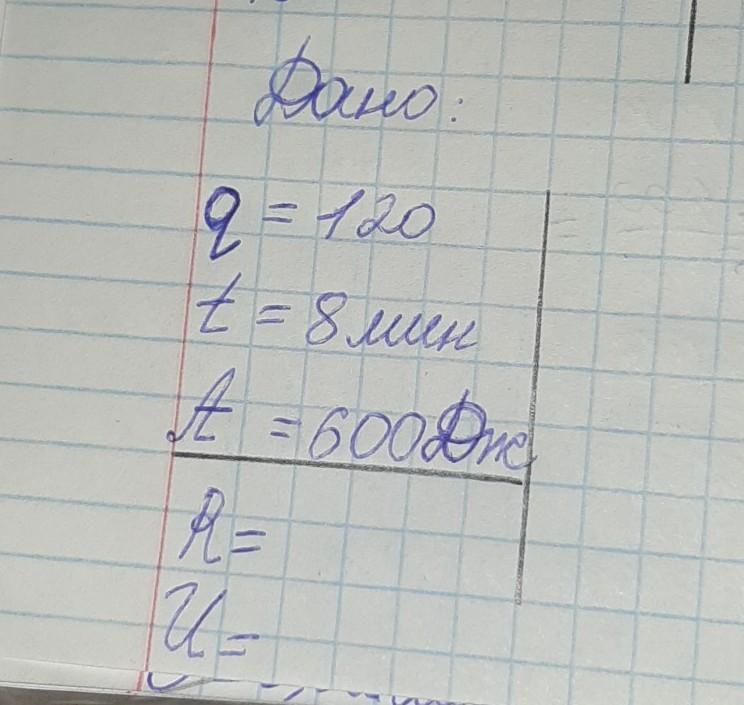 Дано:
q = 120
t = 8 мин
A = 600 Дж
R =
U =